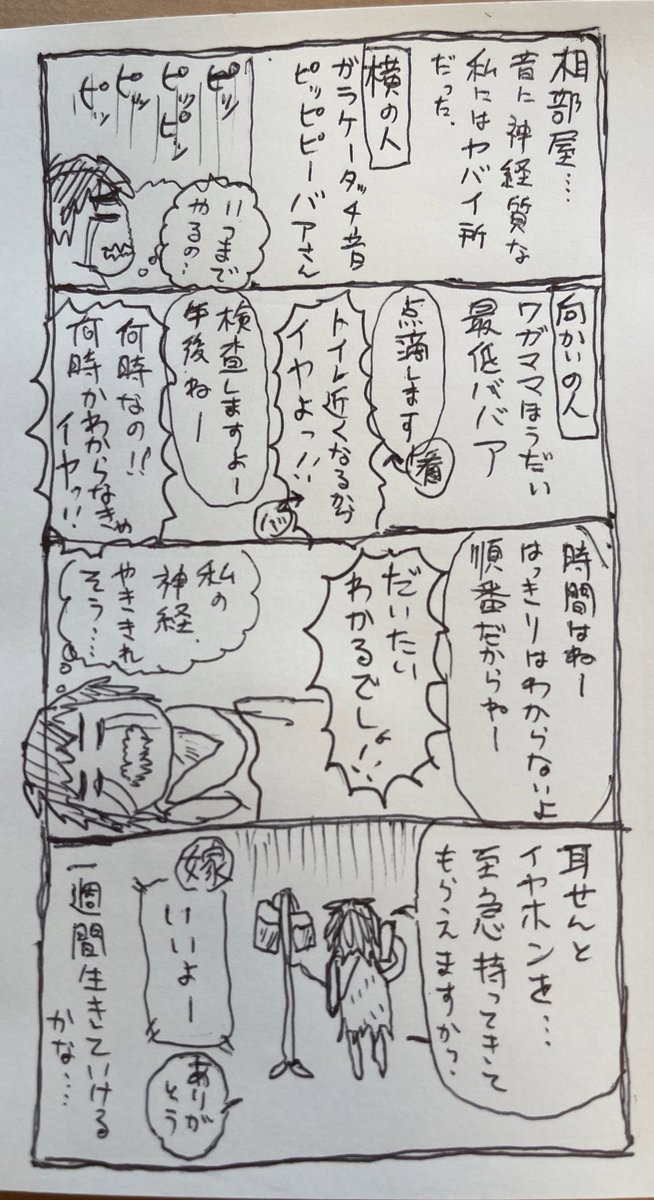 相部屋…
音に神経質な
私にはヤバイ所
だった.
横の人
ガラケータッチ音
ピッピピーバアさん
ピッ
ピッピッ
ピッ
ピッ
いつまで
やるの…
向かいの人
ワガママほうだい
最低ババア
点滴します
看
トイレ近くなるから
イヤよっ!!
バ
検査しますよー
午後ねー
何時なの!!
何時かわからなきゃ
イヤッ!!
時間はねー
はっきりはわからないよ
順番だからねー
だいたい
わかるでしょ!!
私の
神経、
やききれ
そう…
耳せんと
イヤホンを…
至急持ってきて
もらえますか?
嫁
いいよー
ありが
とう
一週間生きていける
かな…